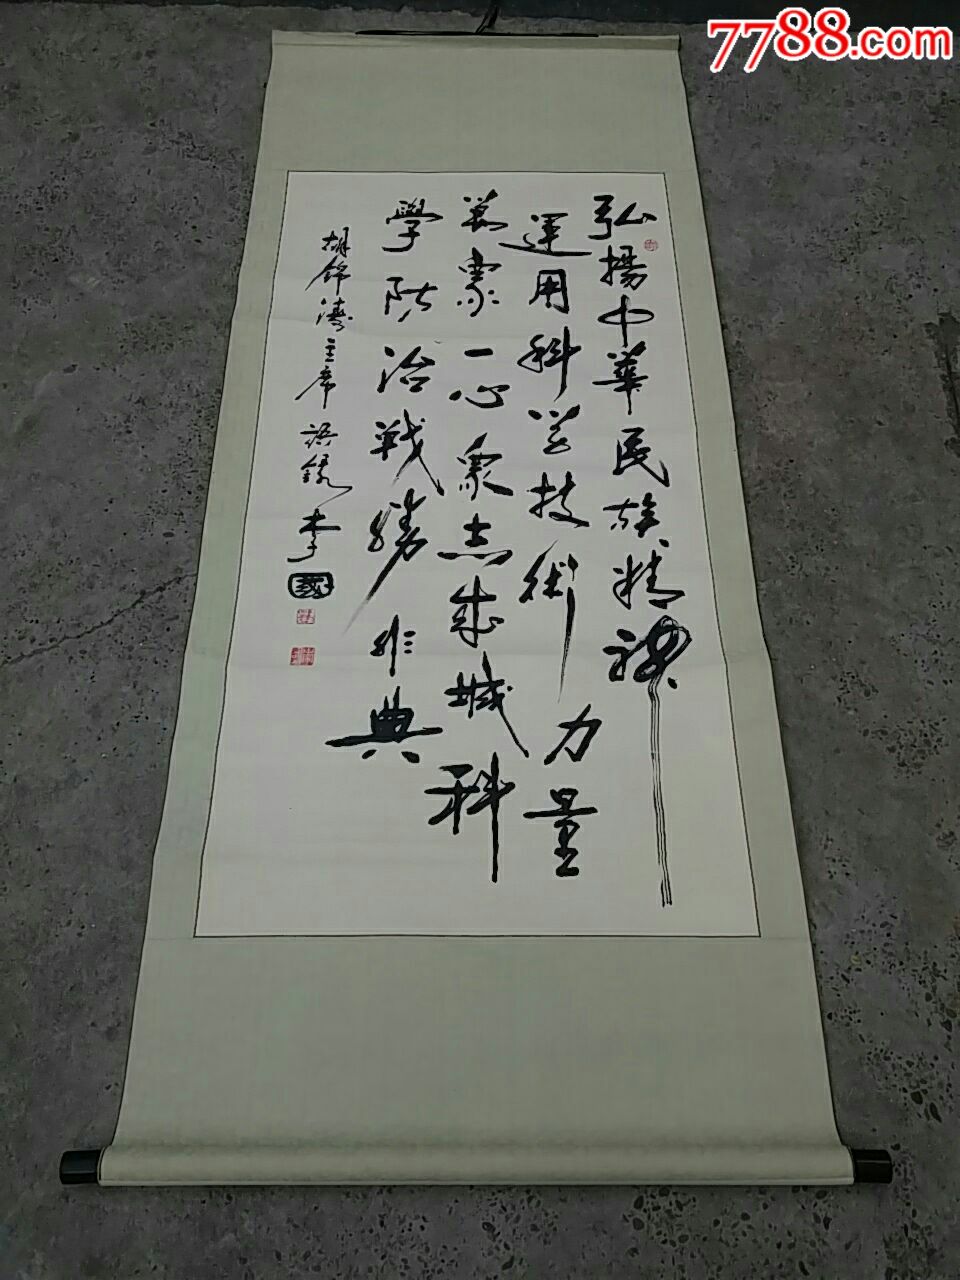 7788.com
弘揚中華民族精神
運用科学技術力量
萬衆一心衆志成城科
學防治戰勝非典
胡錦濤主席語錄 李